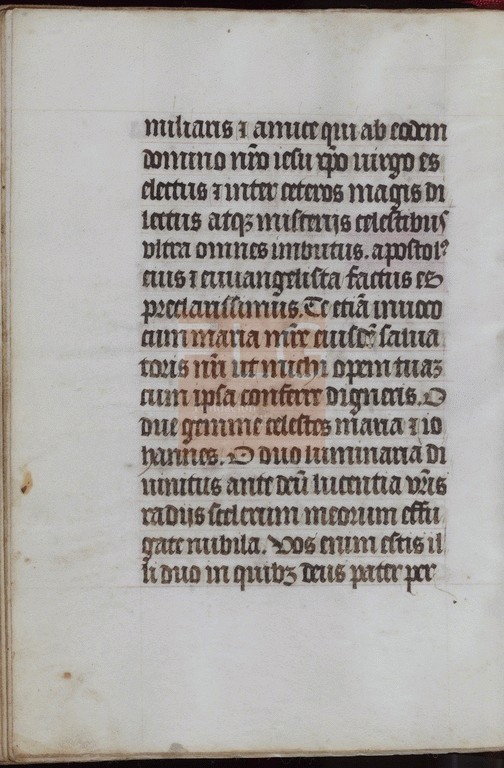 miliaris ⁊ amice qui ab eodem
domino nr̄o iesu xp̄o uirgo es
electus ⁊ inter ceteros magis di
lectus atqꝫ misterijs celestibus
vltra omnes imbutus. apostolꝰ
eius ⁊ euuangelista factus es
preclarissimus. Te etiā inuoco
cum maria mr̄e eiusdē salua
toris nr̄i ut michi opem tuaꝫ
cum ipsa conferre digneris. O
due gemme celestes maria ⁊ io
hannes. O duo luminaria di
uinitus ante deū lucentia vr̄is
radijs scelerum meorum effu
gate nubila. Vos enim estis il
li duo in quibꝫ deus pater per